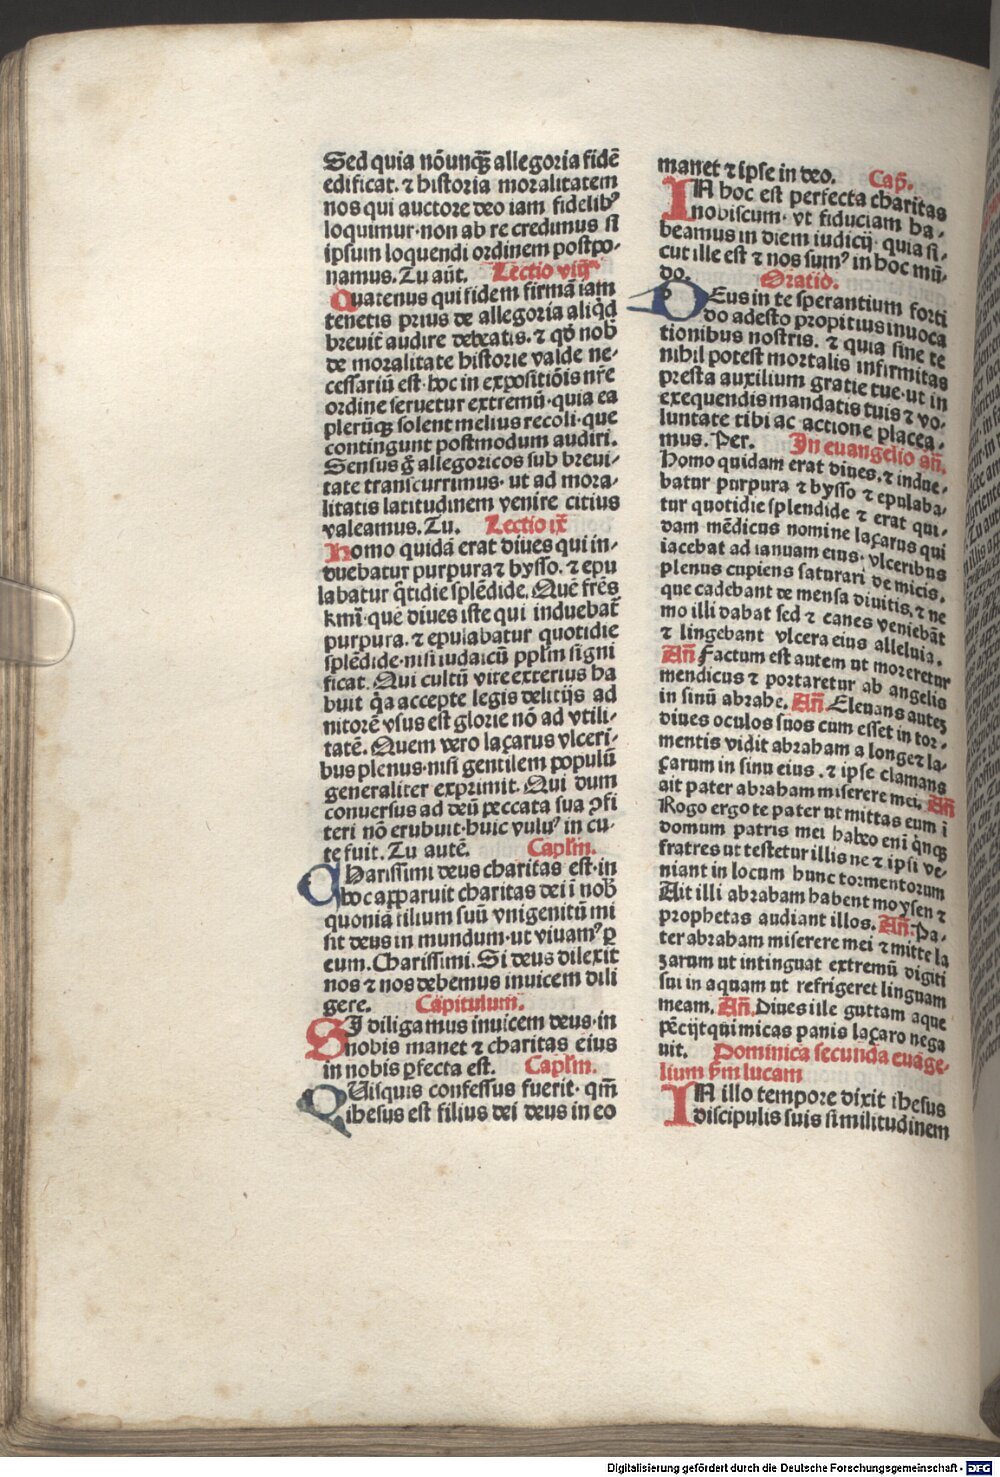 Sed quia nōunq̄ꝫ allegoria fidē
edificat. ⁊ historia moralitatem
nos qui auctore deo iam fidelibꝰ
loquimur· non ab re credimus si
ipsum loquendi ordinem postpo-
namus. Tu aūt. Lectio viij
Quatenus qui fidem firmā iam
tenetis prius de allegoria aliq̇d
breuit̄ audire debeatis. ⁊ qđ nob̄
de moralitate historie valde ne-
cessariū est· hoc in expositiōis nr̄e
ordine seruetur extremū· quia ea
plerūqꝫ solent melius recoli· que
contingunt postmodum audiri.
Sensus g̊ allegoricos sub breui-
tate transcurrimus· ut ad mora-
litatis latitudinem venire citius
valeamus. Tu. Lectio ix
Homo quidā erat diues qui in-
duebatur purpura ⁊ bysso. ⁊ epu
labatur q̄tidie splēdide. Quē fr̄es
kmi· que diues iste qui induebat̄
purpura. ⁊ epulabatur quotidie
splēdide· nisi iudaicū pplm̄ signi
ficat. Qui cultū vite exterius ha
buit q̇a accepte legis delitijs ad
nitorē vsus est glorie nō ad vtili-
tatē. Quem vero laçarus vlceri-
bus plenus· nisi gentilem populū
generaliter exprimit. Qui dum
conuersus ad deū peccata sua ꝓfi
teri nō erubuit· huic vulnꝰ in cu-
te fuit. Tu autē. Caplm̄.
CHarissimi deus charitas est· in
hoc apparuit charitas dei ī nob̄
quoniā filium suū vnigenitū mi
sit deus in mundum· ut viuamꝰ ꝑ
eum. Charissimi. Si deus dilexit
nos ⁊ nos debemus inuicem dili
gere. Capitulum.
SI diligamus inuicem deus· in
nobis manet ⁊ charitas eius
in nobis ꝑfecta est. Caplm̄.
QUisquis confessus fuerit· qm̄
ihesus est filius dei deus in eo
manet ⁊ ipse in deo. Cap̄.
IN hoc est perfecta charitas
nobiscum· vt fiduciam ha-
beamus in diem iudicij· quia si-
cut ille est ⁊ nos sumꝰ in hoc mū-
do. Oratio.
DEus in te sperantium forti
do adesto propitius inuoca
tionibus nostris. ⁊ quia sine te
nihil potest mortalis infirmitas
presta auxilium gratie tue· ut in
exequendis mandatis tuis ⁊ vo-
luntate tibi ac actione placea-
mus. Per. In euangelio añ.
Homo quidam erat diues. ⁊ indue-
batur purpura ⁊ bysso ⁊ epulaba-
tur quotidie splendide ⁊ erat qui-
dam mēdicus nomine laçarus qui
iacebat ad ianuam eius· vlceribus
plenus cupiens saturari de micis.
que cadebant de mensa diuitis. ⁊ ne
mo illi dabat sed ⁊ canes veniebāt
⁊ lingebant vlcera eius alleluia.
Añ Factum est autem ut moreretur
mendicus ⁊ portaretur ab angelis
in sinū abrahe. Añ Eleuans auteꝫ
diues oculos suos cum esset in tor-
mentis vidit abraham a longe ⁊ la-
çarum in sinu eius. ⁊ ipse clamans
ait pater abraham miserere mei. Añ
Rogo ergo te pater ut mittas eum ī
domum patris mei habeo enī q̇nqꝫ
fratres ut testetur illis ne ⁊ ipsi ve-
niant in locum hunc tormentorum
Ait illi abraham habent moysen ⁊
prophetas audiant illos. Añ. Pa-
ter abraham miserere mei ⁊ mitte la
zarum ut intinguat extremū digiti
sui in aquam ut refrigeret linguam
meam. Añ. Diues ille guttam aque
pēcijt qui micas panis laçaro nega
uit. Dominica secunda euāge-
lium ẜm lucam
IN illo tempore dixit ihesus
discipulis suis similitudinem
Digitalisierung gefördert durch die Deutsche Forschungsgemeinschaft - DFG